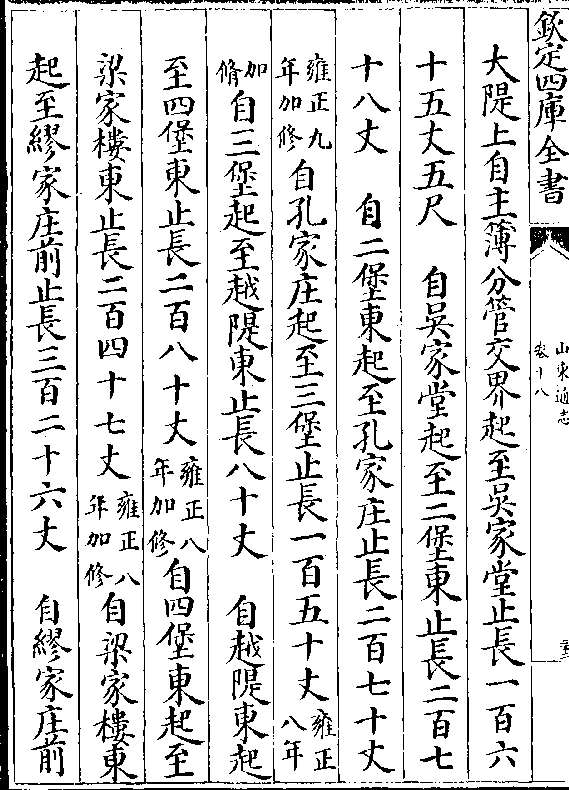 欽定四庫全書
山東通志
卷十八
大隄上自主簿分管交界起至吳家堂止長一百六
十五丈五尺　自吳家堂起至二堡東止長二百七
十八丈　自二堡東起至孔家庄止長二百七十丈
雍正九年加修自孔家庄起至三堡止長一百五十丈雍正八年
加脩自三堡起至越隄東止長八十丈　自越隄東起
至四堡東止長二百八十丈雍正八年加修自四堡東起至
梁家樓東止長二百四十七丈雍正八年加修自梁家樓東
起至繆家庄前止長三百二十六丈　自繆家庄前